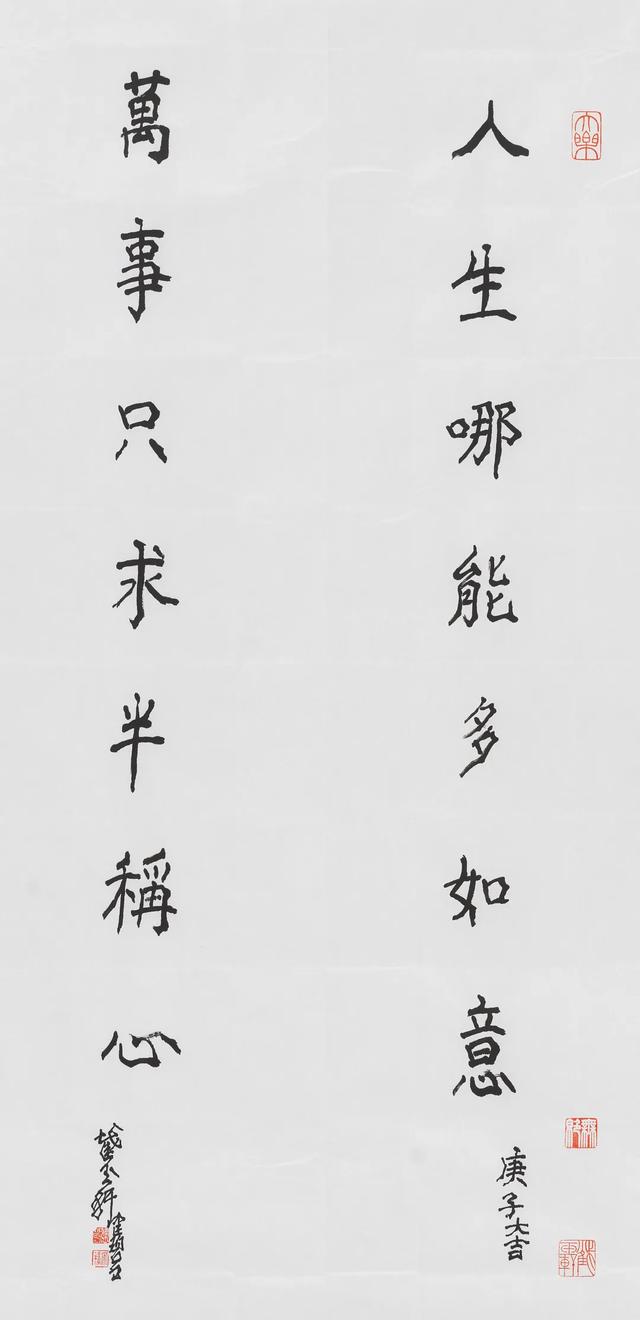 人生哪能多如意
庚子大吉
萬事只求半稱心